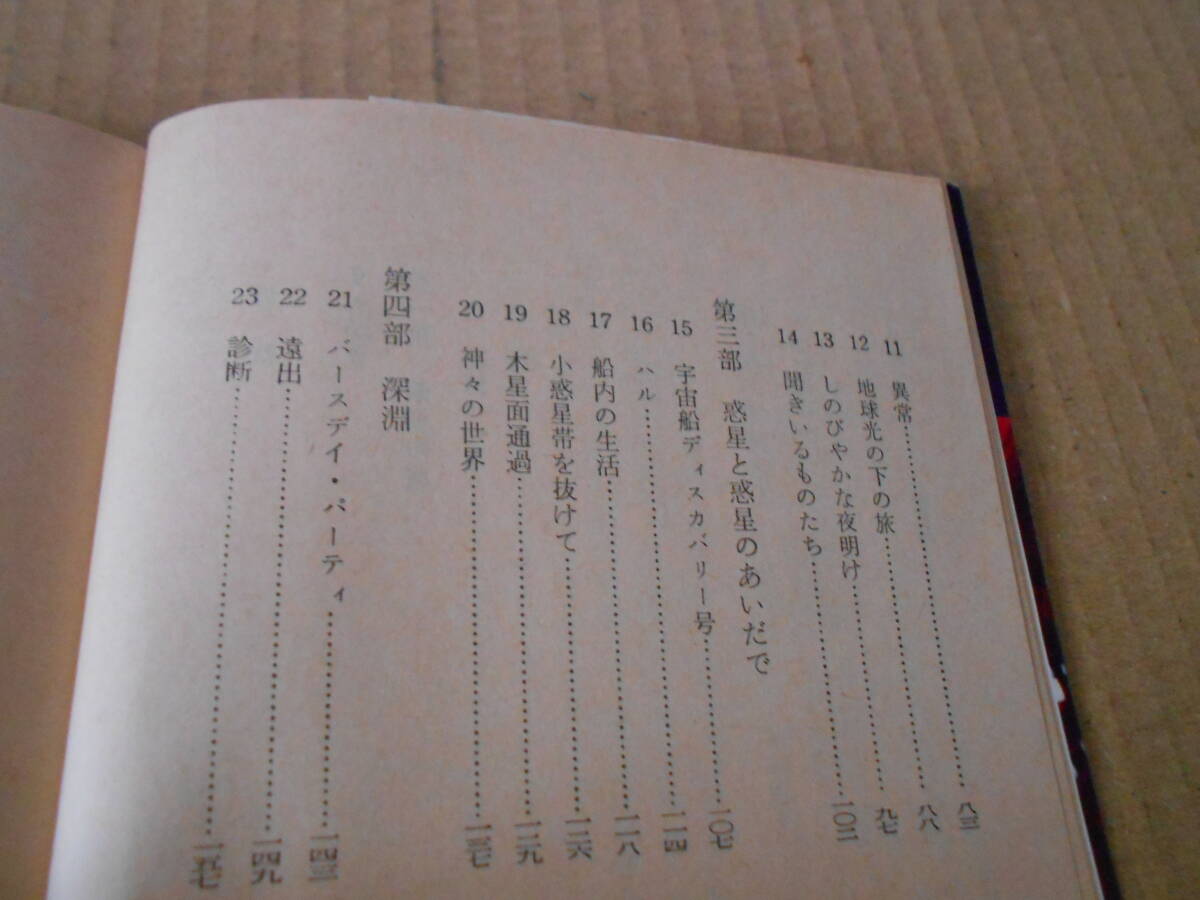 11 異常……八三
12 地球光の下の旅……八八
13 しのびやかな夜明け……九七
14 聞きいるものたち……一〇二
第三部 惑星と惑星のあいだで
15 宇宙船ディスカバリー号……一〇七
16 ハル……一一四
17 船内の生活……一一八
18 小惑星帯を抜けて……一二六
19 木星面通過……一二九
20 神々の世界……一三七
第四部 深淵
21 バースデイ・パーティ……一四三
22 遠出……一四九
23 診断……一五七